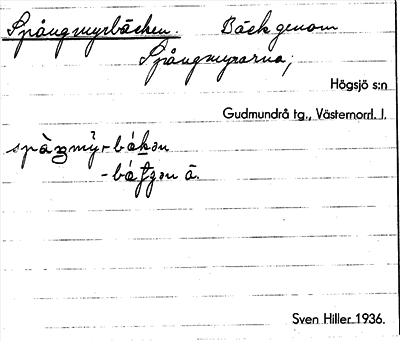 Spångmyrbäcken. Bäck genom
Spångmyrarna,
Högsjö s:n
Gudmundrå tg., Västernorrl. l.
Sven Hiller 1936.